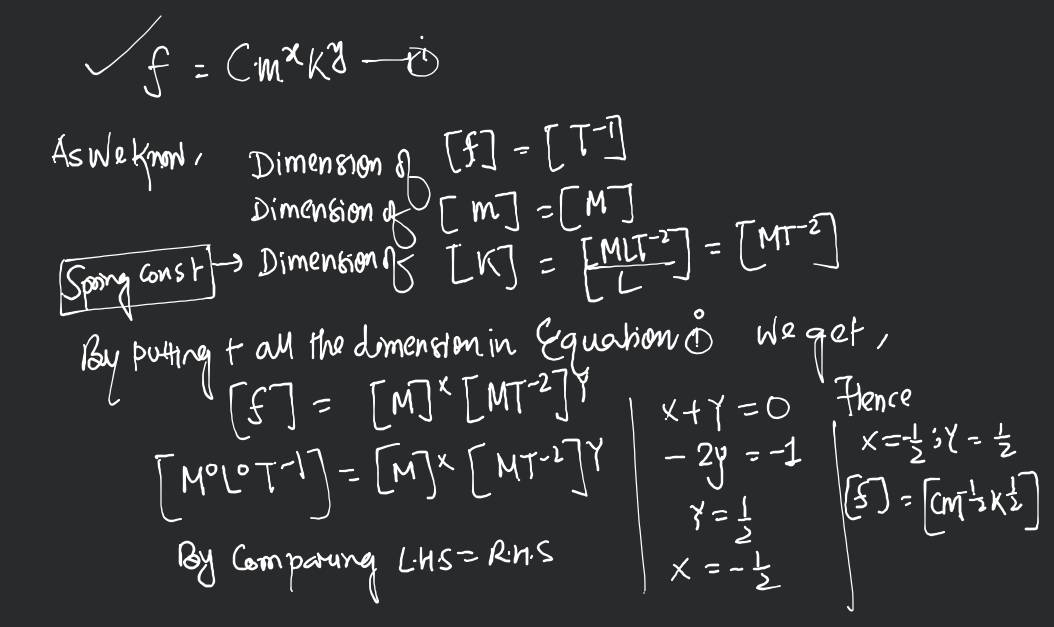 ✓ f = C m^x K^y — (i)
As We Know, Dimension of [f] = [T^-1]
Dimension of [m] = [M]
Spring const → Dimension of [K] = [MLT^-2]/[L] = [MT^-2]
By putting t all the dimension in Equation (i) we get,
[f] = [M]^x [MT^-2]^Y
[M^0L^0T^-1] = [M]^x [MT^-2]^Y
By Comparing L.H.S = R.H.S
x+Y=0
-2y = -1
Y = 1/2
x = -1/2
Hence
x = -1/2 ; Y = 1/2
[f] = [Cm^-1/2 K^1/2]